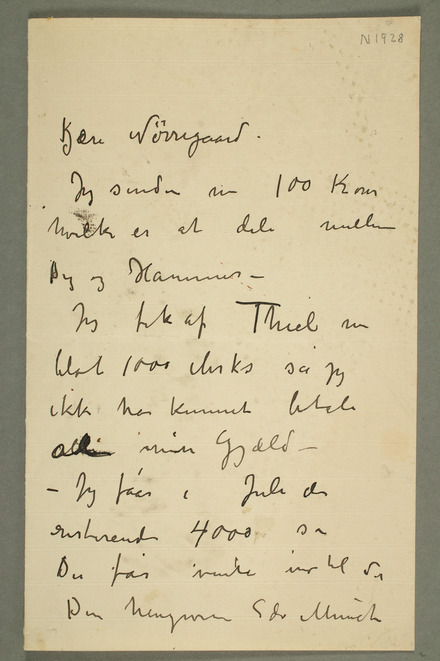 N 1928
Kjære Nörregaard.
Jeg sender nu 100 Kroner
hvilke er at dele mellem
Dig og Hammer –
Jeg fik af Thiel nu
blot 1000 Marks så jeg
ikke har kunnet betale
alle mine Gjæld –
– Jeg fåar i Juli de
resterende 4000 så
Du får vente indtil da
Din hengivne Edv Munch